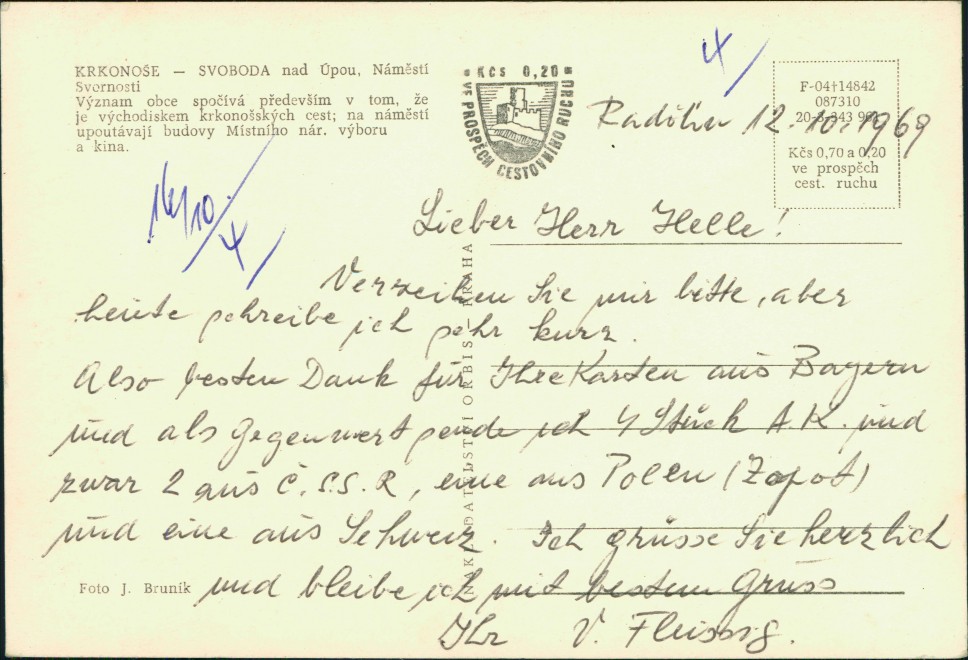 KRKONOŠE — SVOBODA nad Úpou, Náměstí
Svornosti
Význam obce spočívá především v tom, že
je východiskem krkonošských cest; na náměstí
upoutávají budovy Místního nár. výboru
a kina.
KČS 0,20
VE PROSPĚCH CESTOVNÍHO RUCHU
F-04†14842
087310
20-8-343 901
Kčs 0,70 a 0,20
ve prospěch
cest. ruchu
4/
12.10.1969
14/10/
4/
Lieber Herr Helle!
Verzeihen Sie mir bitte, aber
heute schreibe ich sehr kurz.
Also besten Dank für Ihre Karten aus Bayern
und als Gegenwert sende ich 4 Stück A.K. und
zwar 2 aus Č.S.S.R, eine aus Polen (Zopot)
und eine aus Schweiz. Ich grüsse Sie herzlich
und bleibe ich mit bestem Grüss
Ihr V. Fleissig.
NAKLADATELSTVÍ ORBIS — PRAHA
Foto J. Bruník